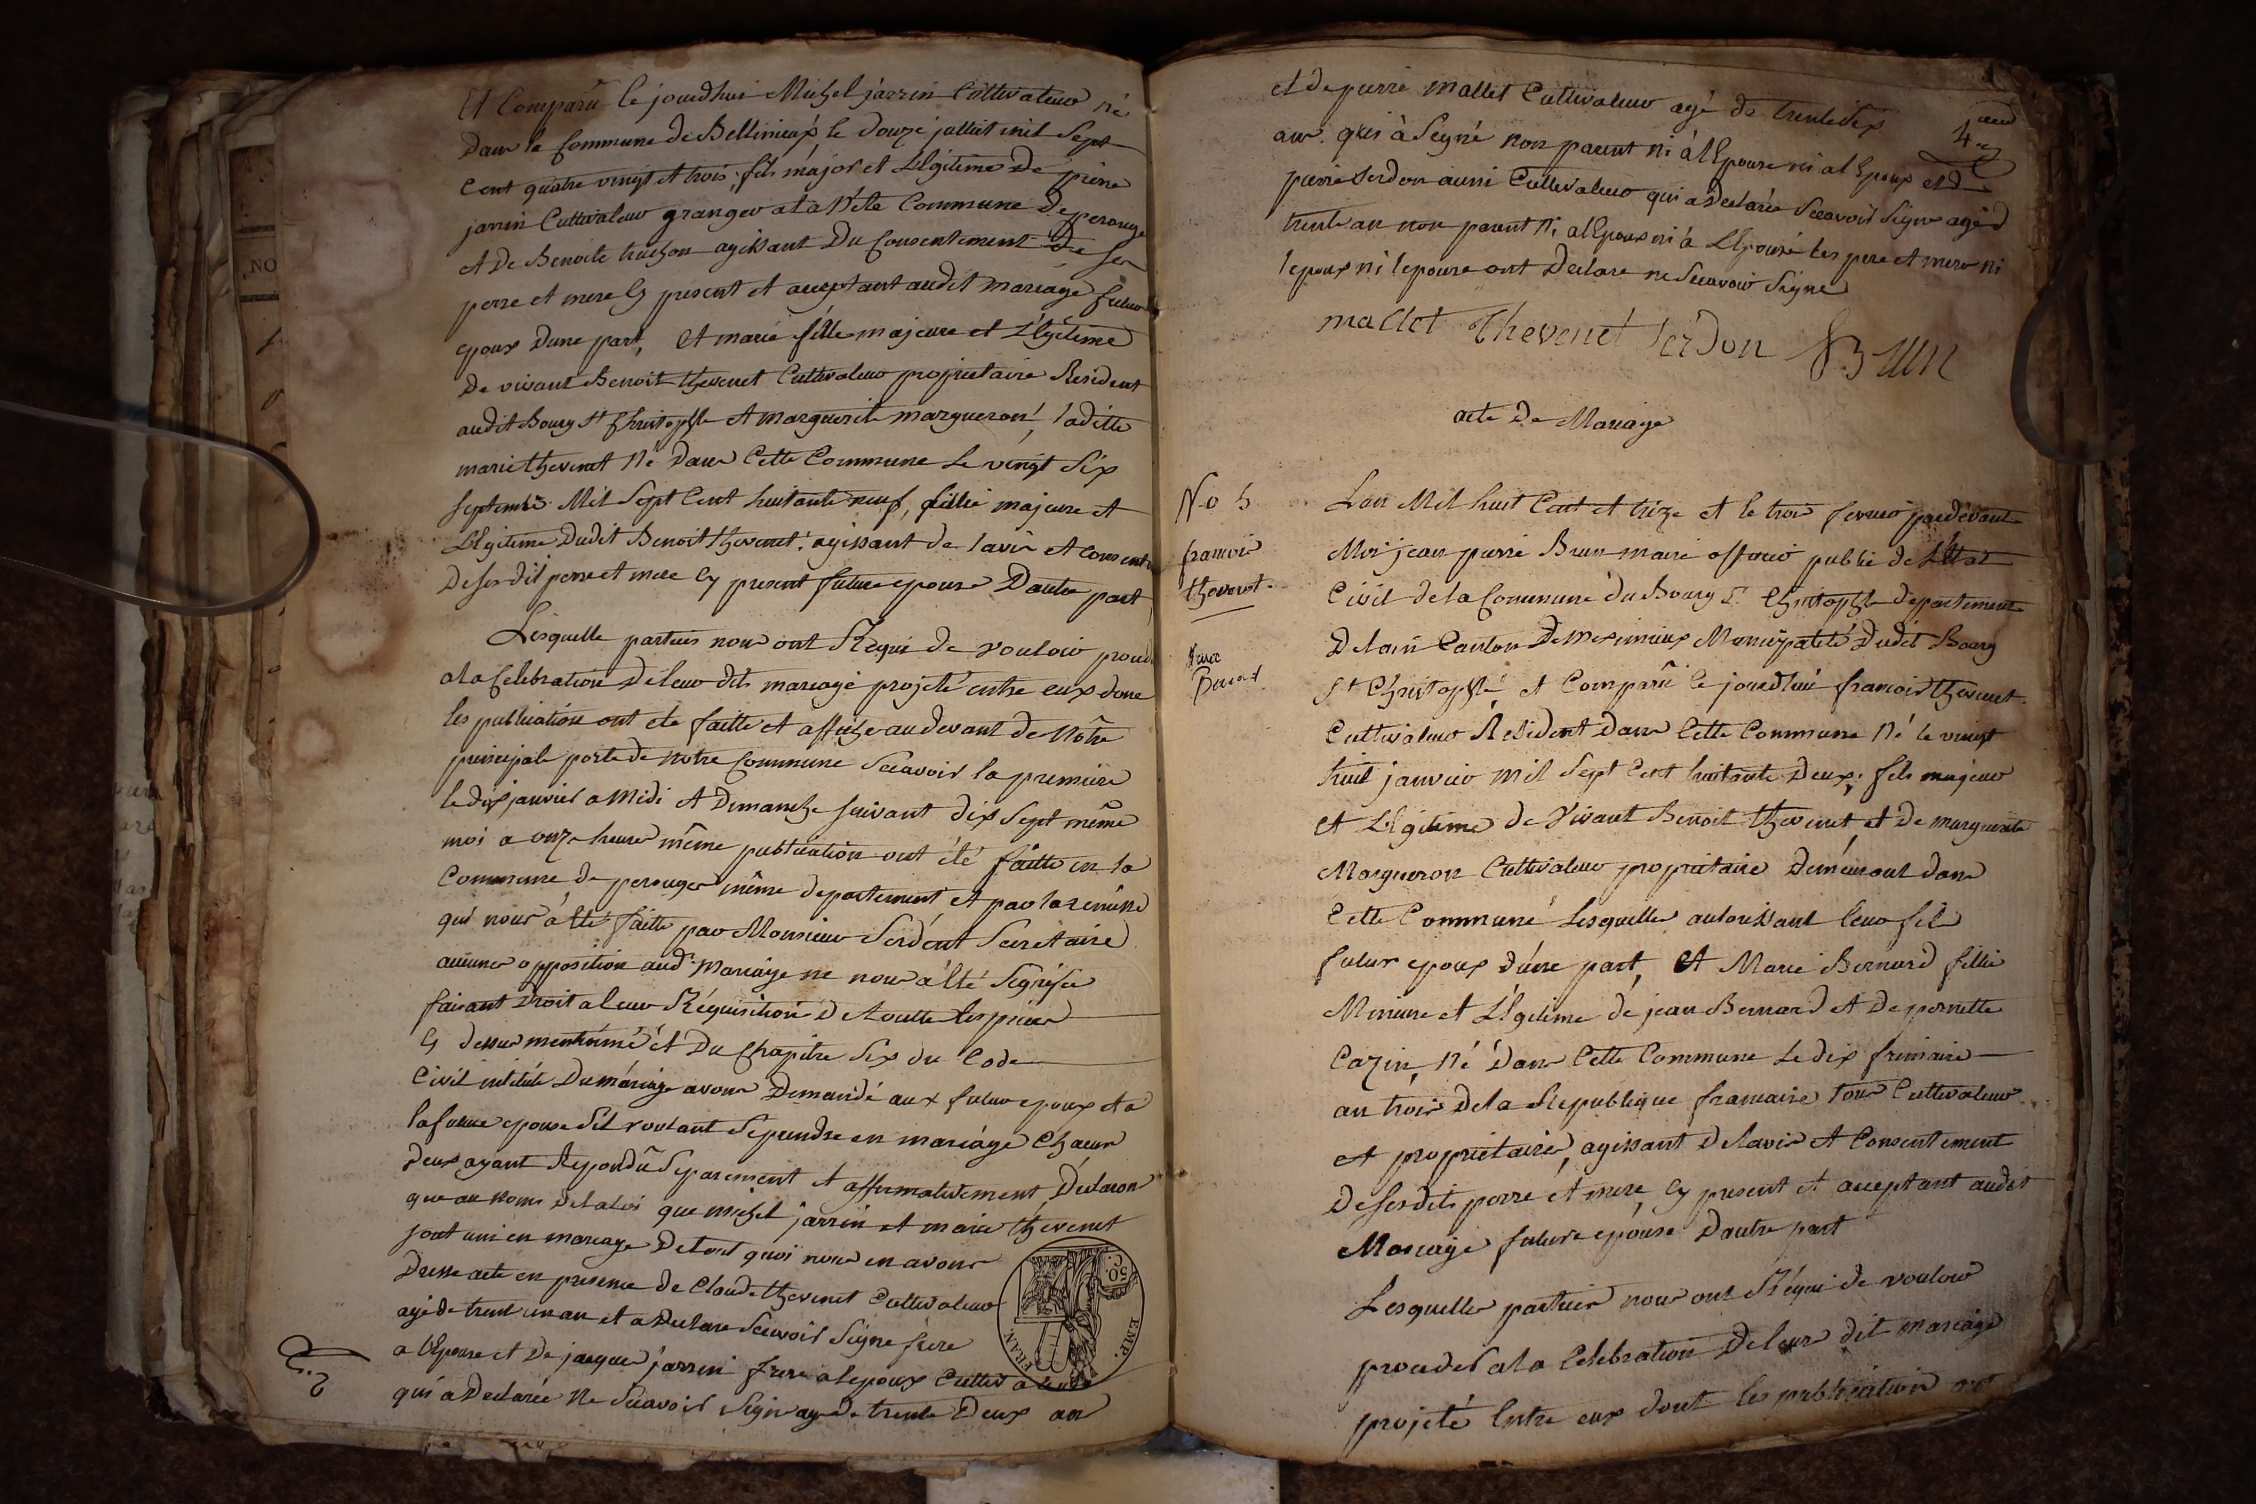 Et Comparu le jourdhui Michel jarrin Cultivateur né
Dans la Commune de Bellinieux le douze juillet mil Sept
Cent quatre vingt et trois, fils major et Légitime De pierre
jarrin Cultivateur granger a la Commune de perouge
et De Benoite truchon agissant Du Consentement De ses
perre et mere Cy present et acceptant audit mariage futur
epoux Dune part, Et marie fille majeure et Légitime
De vivant Benoit thevenet Cultivateur proprietaire Resident
audit Bourg St Christophle et marguerite margueron, laditte
marie thevenet Né Dans Cette Commune Le vingt Six
septembre Mil Sept Cent huitante neuf, fillie majeure et
Légitime Dudit Benoit thevenet agissant de lavis et consent
De ses dit perre et mere Cy present future epouse Dautre part
Lesquelle parties nous ont Requi de vouloir proud
a la Celebration De leur dit mariage projeté entre eux dont
les publication ont ete faitte et affiche au devant de Notre
principale porte de notre Commune Scavoir la premiere
le dix janvier a Midi et Dimanche suivant dix Sept même
moi a onze heure même publication ont été faitte en la
Commune de perouge même departement et par la remise
qui nous à été faitte par Monsieur Serdont Secretaire
aucune opposition aud. Mariage ne nous à été Signifié
faisant Droit a leur Réquisition
Cy dessus mentionné et Du Chapitre Six du Code
Civil intitulé Du mariage avons Demandé aux futur epoux et a
la future epouse Sil voulant Se prendre en mariage Chacun
Deux ayant Repondû Separement et affirmativement Déclaron
que au nom De la loi que michel jarrin et marie thevenet
sont uni en mariage De tout quoi nous en avons
Dresse acte en presence de Claude thevenet Cultivateur
agé de trent un an et a Declare Scavoir Signe frere
a lEpouse et De jacque jarrin frere a lepoux Cultivateur
qui a Declarée Ne Scavoir Signe agé De trente Deux an
EMP. FRAN.
50. C.
et De pierre mallet Cultivateur agé de trente Six
4
ans qui à Signé non parent ni à lEpouse ni a lEpoux et D
pierre Serdon aussi Cultivateur qui a Declarée Scavoir Signe agé d
trente an non parent Ni a lEpoux ni à LEpouse les pere et mere ni
lepoux ni lepouse ont Declare ne Scavoir Signe
mallet Thevenet Serdon Brun
acte De Mariage
No 5
francois
thevenet
Marie
Bernard
Lan Mil huit Cent et trize et le trois fevrier pardevant
Moi jean pierre Brun maire officier public de LEtat
Civil de la Commune du Bourg St Christophle département
De lain Canton De meximieux Municipalité Dudit Bourg
St Christophle et Comparu le jourdhui francois thevenet
Cultivateur Résident Dans Cette Commune Né le vingt
huit janvier mil Sept Cent huitante Deux, fils majeur
et Légitime de Vivant Benoit thevenet et De marguerite
Margueron Cultivateur proprietaire Demeurant dans
Cette Commune Lesquelles autorissant leur fils
futur epoux d'une part, Et Marie Bernard fillie
Mineure et Légitime de jean Bernard et De pernette
Cazin, Né Dans Cette Commune Le dix frimaire
an trois De la Republique francaise tous Cultivateur
et proprietaire, agissant De lavis et Consentement
De ses dits perre et mere, Cy present et acceptant audit
Mariage future epouse Dautre part
Lesquelles parties nous ont Réqui de vouloir
proceder a la Celebration De leurs dit mariage
projeté Entre eux dont les publication ont